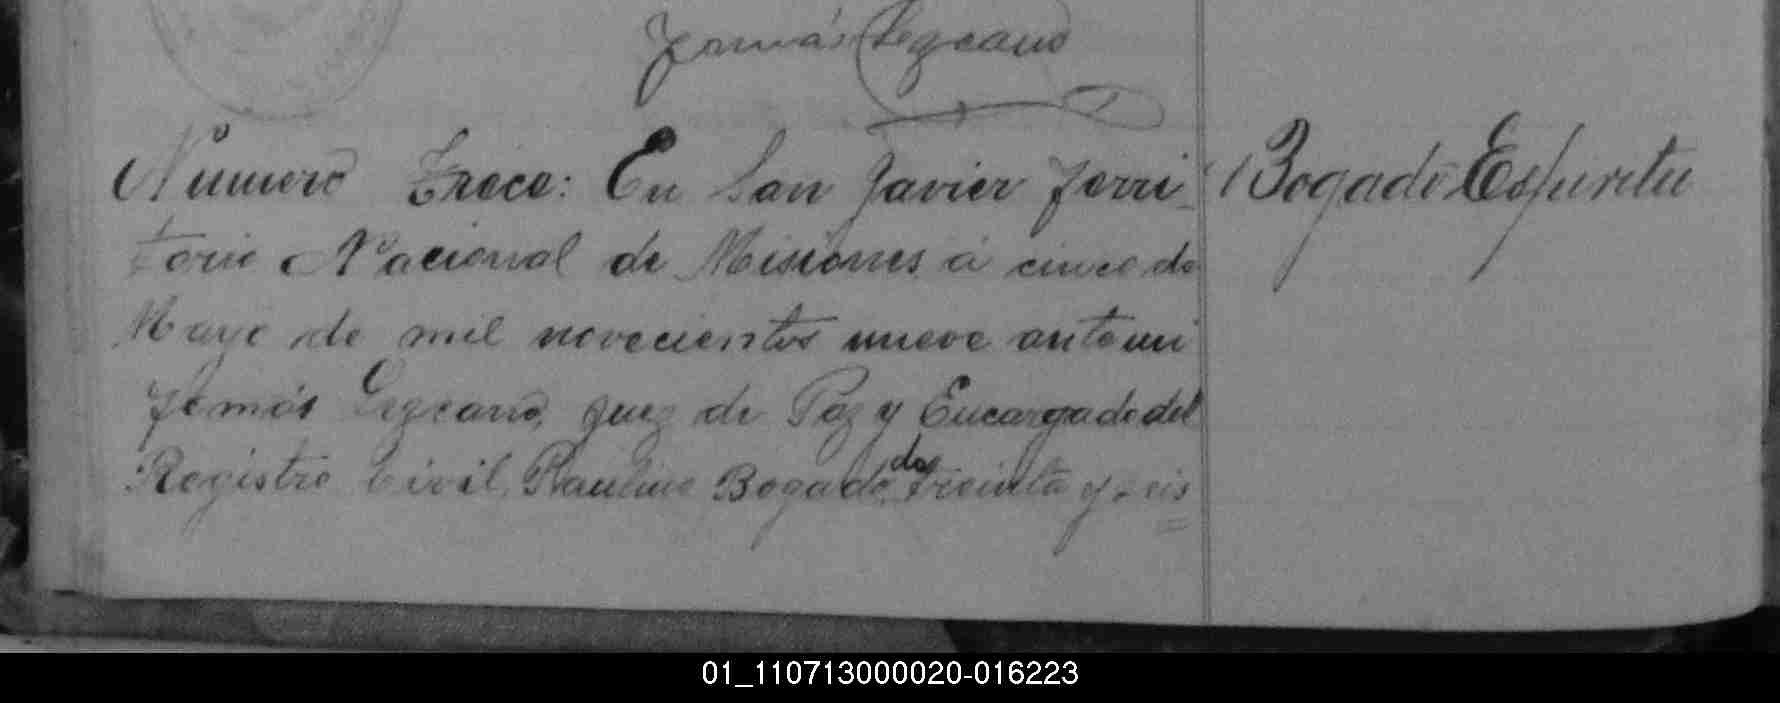 Tomás Lezcano
Número Trece: En San Javier Terri- Bogado Espiritu
torio Nacional de Misiones á cinco de
Mayo de mil novecientos nueve ante mi
Tomás Lezcano, Juez de Paz y Encargado del
Registro Civil, Paulino Bogado, de treinta y seis
01_110713000020-016223